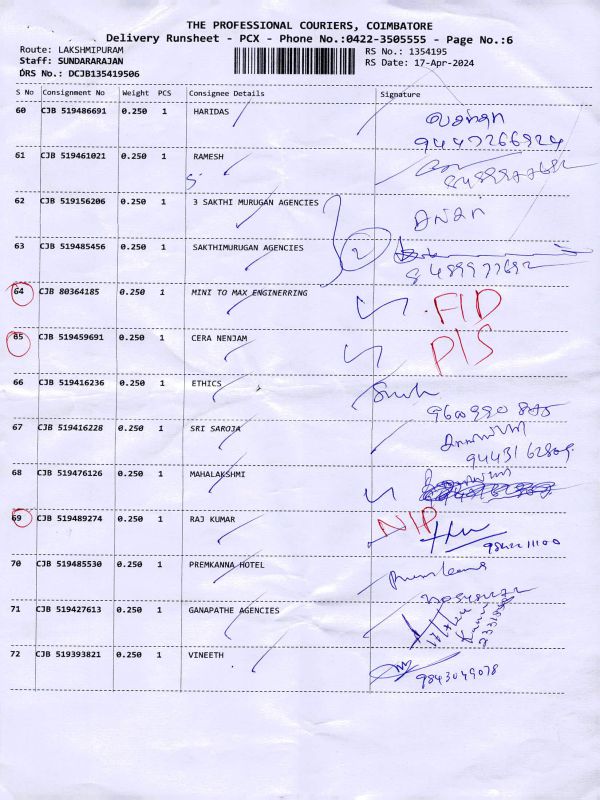 THE PROFESSIONAL COURIERS, COIMBATORE
Delivery Runsheet - PCX - Phone No.:0422-3505555 - Page No.:6
Route: LAKSHMIPURAM RS No.: 1354195
Staff: SUNDARARAJAN RS Date: 17-Apr-2024
DRS No.: DCJB135419506
S No Consignment No Weight PCS Consignee Details Signature
60 CJB 519486691 0.250 1 HARIDAS
9447266924
61 CJB 519461021 0.250 1 RAMESH
8489977692
62 CJB 519156206 0.250 1 3 SAKTHI MURUGAN AGENCIES
63 CJB 519485456 0.250 1 SAKTHIMURUGAN AGENCIES 2
8489977692
64 CJB 80364185 0.250 1 MINI TO MAX ENGINERRING
65 CJB 519459691 0.250 1 CERA NENJAM
66 CJB 519416236 0.250 1 ETHICS
67 CJB 519416228 0.250 1 SRI SAROJA
68 CJB 519476126 0.250 1 MAHALAKSHMI
69 CJB 519489274 0.250 1 RAJ KUMAR
70 CJB 519485530 0.250 1 PREMKANNA HOTEL
71 CJB 519427613 0.250 1 GANAPATHE AGENCIES
72 CJB 519393821 0.250 1 VINEETH
9843049078